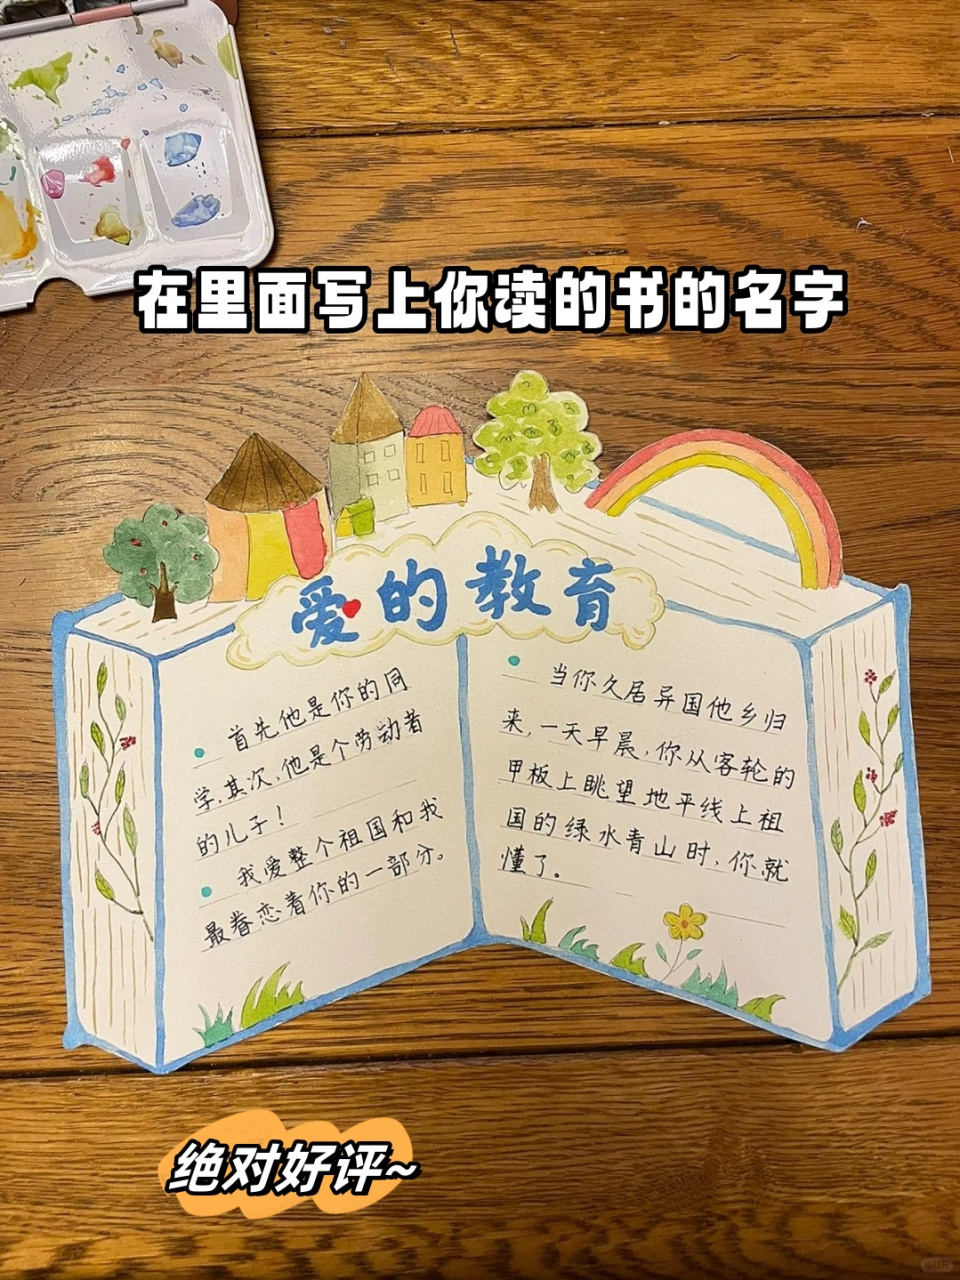 在里面写上你读的书的名字
爱的教育
首先他是你的同
学,其次,他是个劳动者
的儿子!
我爱整个祖国和我
最眷恋着你的一部分。
当你久居异国他乡归
来,一天早晨,你从客轮的
甲板上眺望地平线上祖
国的绿水青山时,你就
懂了。
绝对好评~